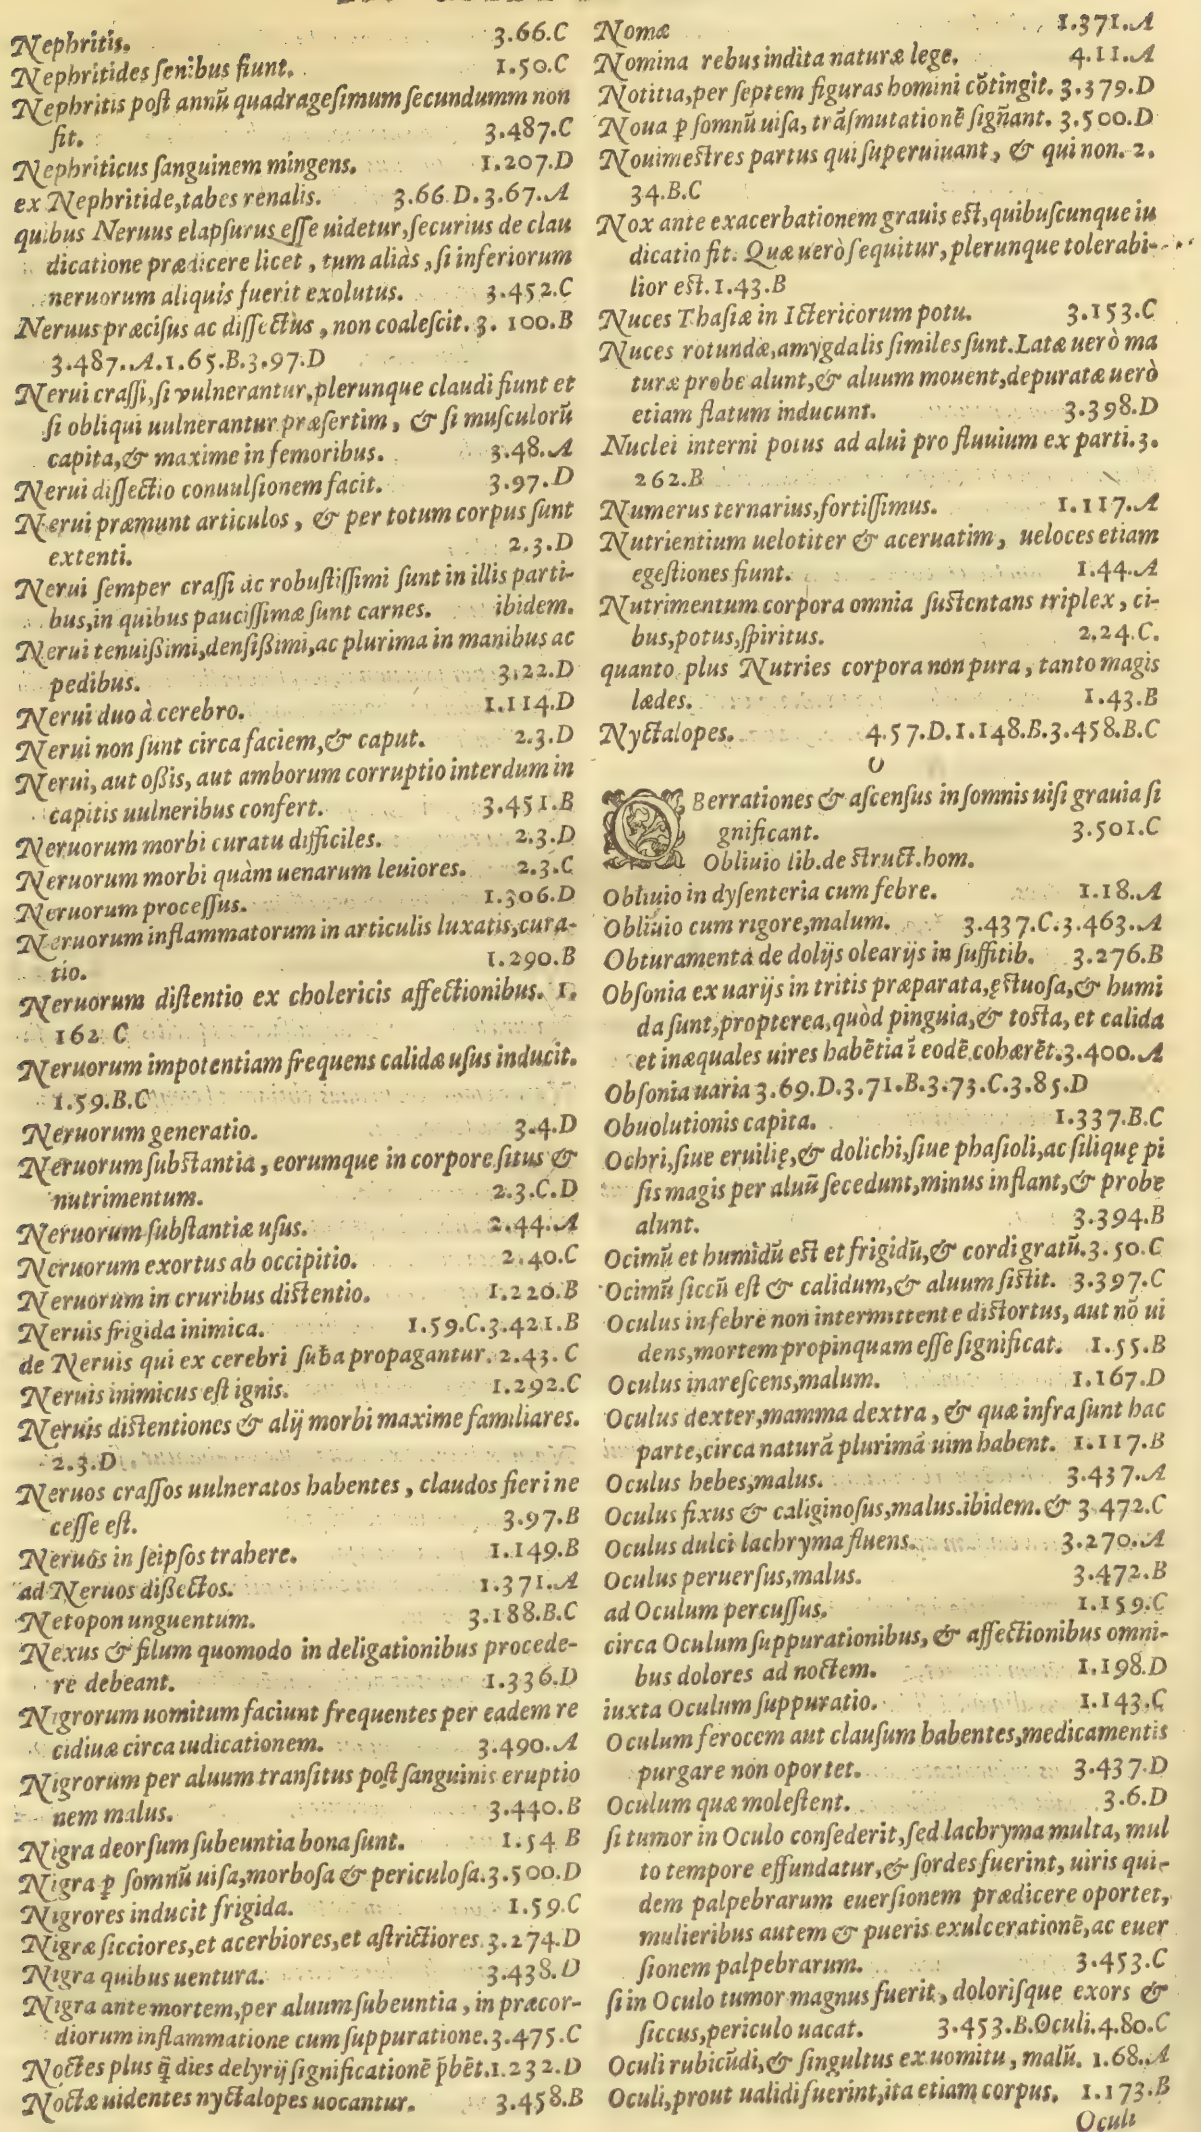 Nephritis. 3.66.C
Nephritides senibus fiunt. 1.50.C
Nephritis post annũ quadragesimum secundumm non
fit. 3.487.C
Nephriticus sanguinem mingens. 1.207.D
ex Nephritide,tabes renalis. 3.66.D.3.67.A
quibus Neruus elapsurus esse uidetur,securius de clau
dicatione prædicere licet, tum aliàs, si inferiorum
neruorum aliquis fuerit exolutus. 3.452.C
Neruus præcisus ac dissectus, non coalescit. 3. 100.B
3.487.A.1.65.B.3.97.D
Nerui crassi,si vulnerantur,plerunque claudi fiunt et
si obliqui uulnerantur præsertim, & si musculorũ
capita,& maxime in femoribus. 3.48.A
Nerui dissectio conuulsionem facit. 3.97.D
Nerui præmunt articulos, & per totum corpus sunt
extenti. 2.3.D
Nerui semper crassi ac robustissimi sunt in illis parti-
bus,in quibus paucissimæ sunt carnes. ibidem.
Nerui tenuißimi,densißimi,ac plurima in manibus ac
pedibus. 3.22.D
Nerui duo à cerebro. 1.114.D
Nerui non sunt circa faciem,& caput. 2.3.D
Nerui, aut oßis, aut amborum corruptio interdum in
capitis uulneribus confert. 3.451.B
Neruorum morbi curatu difficiles. 2.3.D
Neruorum morbi quàm uenarum leuiores. 2.3.C
Neruorum processus. 1.306.D
Neruorum inflammatorum in articulis luxatis,cura-
tio. 1.290.B
Neruorum distentio ex cholericis affectionibus. 1.
162 C
Neruorum impotentiam frequens calidæ usus inducit.
1.59.B.C
Neruorum generatio. 3.4.D
Neruorum substantia, eorumque in corpore situs &
nutrimentum. 2.3.C.D
Neruorum substantiæ usus. 2.44.A
Neruorum exortus ab occipitio. 2.40.C
Neruorum in cruribus distentio. 1.220.B
Neruis frigida inimica. 1.59.C.3.421.B
de Neruis qui ex cerebri suba propagantur. 2.43.C
Neruis inimicus est ignis. 1.292.C
Neruis distentiones & alij morbi maxime familiares.
2.3.D
Neruos crassos uulneratos habentes, claudos fieri ne
cesse est. 3.97.B
Neruos in seipsos trahere. 1.149.B
ad Neruos dißectos. 1.371.A
Netopon unguentum. 3.188.B.C
Nexus & filum quomodo in deligationibus procede-
re debeant. 1.336.D
Nigrorum uomitum faciunt frequentes per eadem re
cidiuæ circa iudicationem. 3.490.A
Nigrorum per aluum transitus post sanguinis eruptio
nem malus. 3.440.B
Nigra deorsum subeuntia bona sunt. 1.54 B
Nigra ꝑ somnũ uisa,morbosa & periculosa.3.500.D
Nigrores inducit frigida. 1.59.C
Nigræ sicciores,et acerbiores,et astrictiores. 3.274.D
Nigra quibus uentura. 3.438.D
Nigra ante mortem,per aluum subeuntia, in præcor-
diorum inflammatione cum suppuratione.3.475.C
Noctes plus q̃ dies delyrij significationẽ p̃bẽt.1.232.D
Noctæ uidentes nyctalopes uocantur. 3.458.B
Nomæ 1.371.A
Nomina rebus indita naturæ lege. 4.11.A
Notitia,per septem figuras homini cõtingit. 3.379.D
Noua ꝑ somnũ uisa, trãsmutationẽ signãnt. 3.500.D
Nouimestres partus qui superuiuant, & qui non. 2.
34.B.C
Nox ante exacerbationem grauis est,quibuscunque iu
dicatio fit. Quæ uerò sequitur, plerunque tolerabi-
lior est. 1.43.B
Nuces Thasiæ in Ictericorum potu. 3.153.C
Nuces rotundæ,amygdalis similes sunt.Latæ uerò ma
turæ probe alunt,& aluum mouent,depuratæ uerò
etiam flatum inducunt. 3.398.D
Nuclei interni potus ad alui pro fluuium ex parti. 3.
262.B
Numerus ternarius,fortissimus. 1.117.A
Nutrientium uelotiter & aceruatim, ueloces etiam
egestiones fiunt. 1.44.A
Nutrimentum corpora omnia sustentans triplex, ci-
bus,potus,spiritus. 2.24.C.
quanto plus Nutries corpora non pura, tanto magis
lædes. 1.43.B
Nyctalopes. 4.57.D.1.148.B.3.458.B.C
O
OBerrationes & ascensus in somnis uisi grauia si
gnificant. 3.501.C
Obliuio lib.de struct.hom.
Obliuio in dysenteria cum febre. 1.18.A
Obliuio cum rigore,malum. 3.437.C.3.463.A
Obturamenta de dolijs olearijs in suffitib. 3.276.B
Obsonia ex uarijs in tritis præparata,ęstuosa,& humi
da sunt,propterea,quòd pinguia,& tosta, et calida
et inæquales uires habẽtia ĩ eodẽ cohærẽt.3.400.A
Obsonia uaria 3.69.D.3.71.B.3.73.C.3.85.D
Obuolutionis capita. 1.337.B.C
Ochri,siue eruilię,& dolichi,siue phasioli,ac siliquę pi
sis magis per aluũ secedunt,minus inflant,& probe
alunt. 3.394.B
Ocimũ et humidũ est et frigidũ,& cordi gratũ.3.50.C
Ocimũ siccũ est & calidum,& aluum sistit. 3.397.C
Oculus in febre non intermittente distortus, aut nõ ui
dens,mortem propinquam esse significat. 1.55.B
Oculus inarescens,malum. 1.167.D
Oculus dexter,mamma dextra, & quæ infra sunt hac
parte,circa naturã plurimã uim habent. 1.117.B
Oculus hebes,malus. 3.437.A
Oculus fixus & caliginosus,malus.ibidem.& 3.472.C
Oculus dulci lachryma fluens. 3.270.A
Oculus peruersus,malus. 3.472.B
ad Oculum percussus. 1.159.C
circa Oculum suppurationibus, & affectionibus omni-
bus dolores ad noctem. 1.198.D
iuxta Oculum suppuratio. 1.143.C
Oculum ferocem aut clausum habentes,medicamentis
purgare non oportet. 3.437.D
Oculum quæ molestent. 3.6.D
si tumor in Oculo consederit,sed lachryma multa, mul
to tempore effundatur,& sordes fuerint, uiris qui-
dem palpebrarum euersionem prædicere oportet,
mulieribus autem & pueris exulcerationẽ,ac euer
sionem palpebrarum. 3.453.C
si in Oculo tumor magnus fuerit, dolorisque exors &
siccus,periculo uacat. 3.453.B.Oculi.4.80.C
Oculi rubicũdi,& singultus ex uomitu, malũ. 1.68.A
Oculi,prout ualidi fuerint,ita etiam corpus. 1.173.B
Oculi